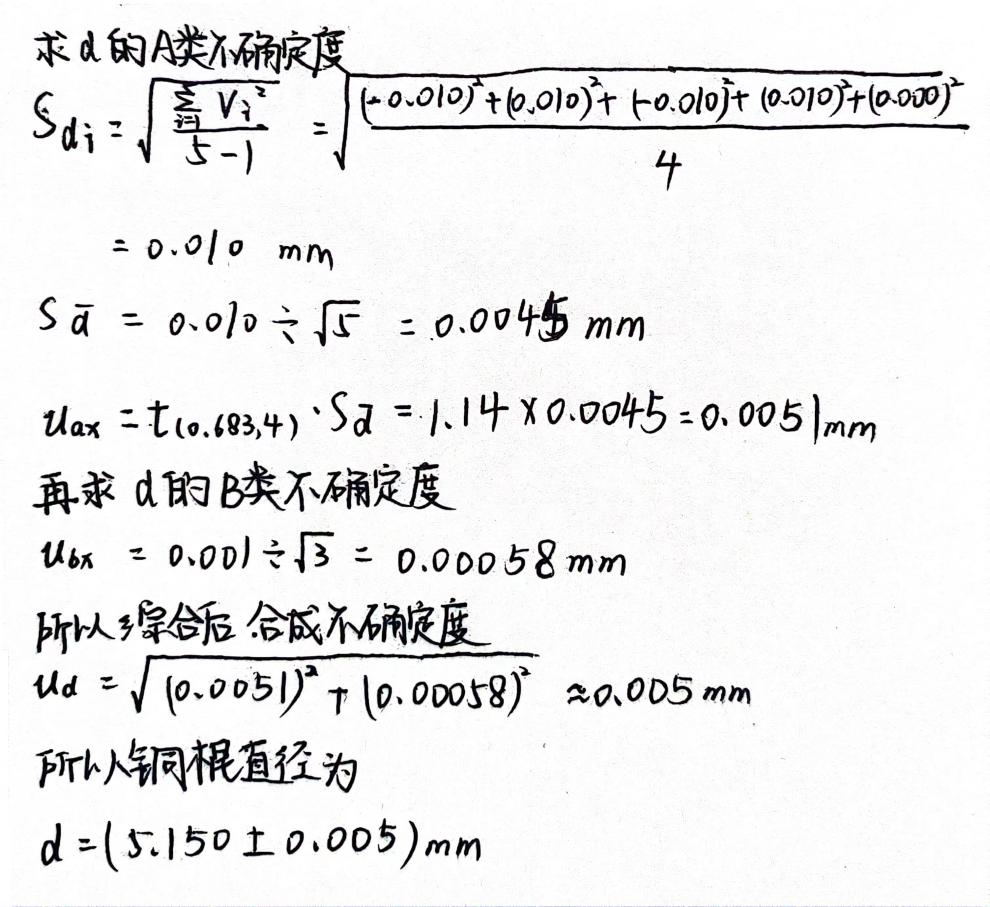 求d的A类不确定度
S_{di} = \sqrt{\frac{\sum_{i=1}^{5} V_i^2}{5-1}} = \sqrt{\frac{(-0.010)^2+(0.010)^2+(-0.010)^2+(0.010)^2+(0.000)^2}{4}}
= 0.010 mm
S_{\bar{d}} = 0.010 ÷ \sqrt{5} = 0.0045 mm
u_{ax} = t_{(0.683,4)} · S_{\bar{d}} = 1.14 × 0.0045 = 0.0051 mm
再求 d的B类不确定度
u_{bx} = 0.001 ÷ \sqrt{3} = 0.00058 mm
所以综合后 合成不确定度
u_d = \sqrt{(0.0051)^2 + (0.00058)^2} ≈ 0.005 mm
所以铜棍直径为
d = (5.150 ± 0.005) mm